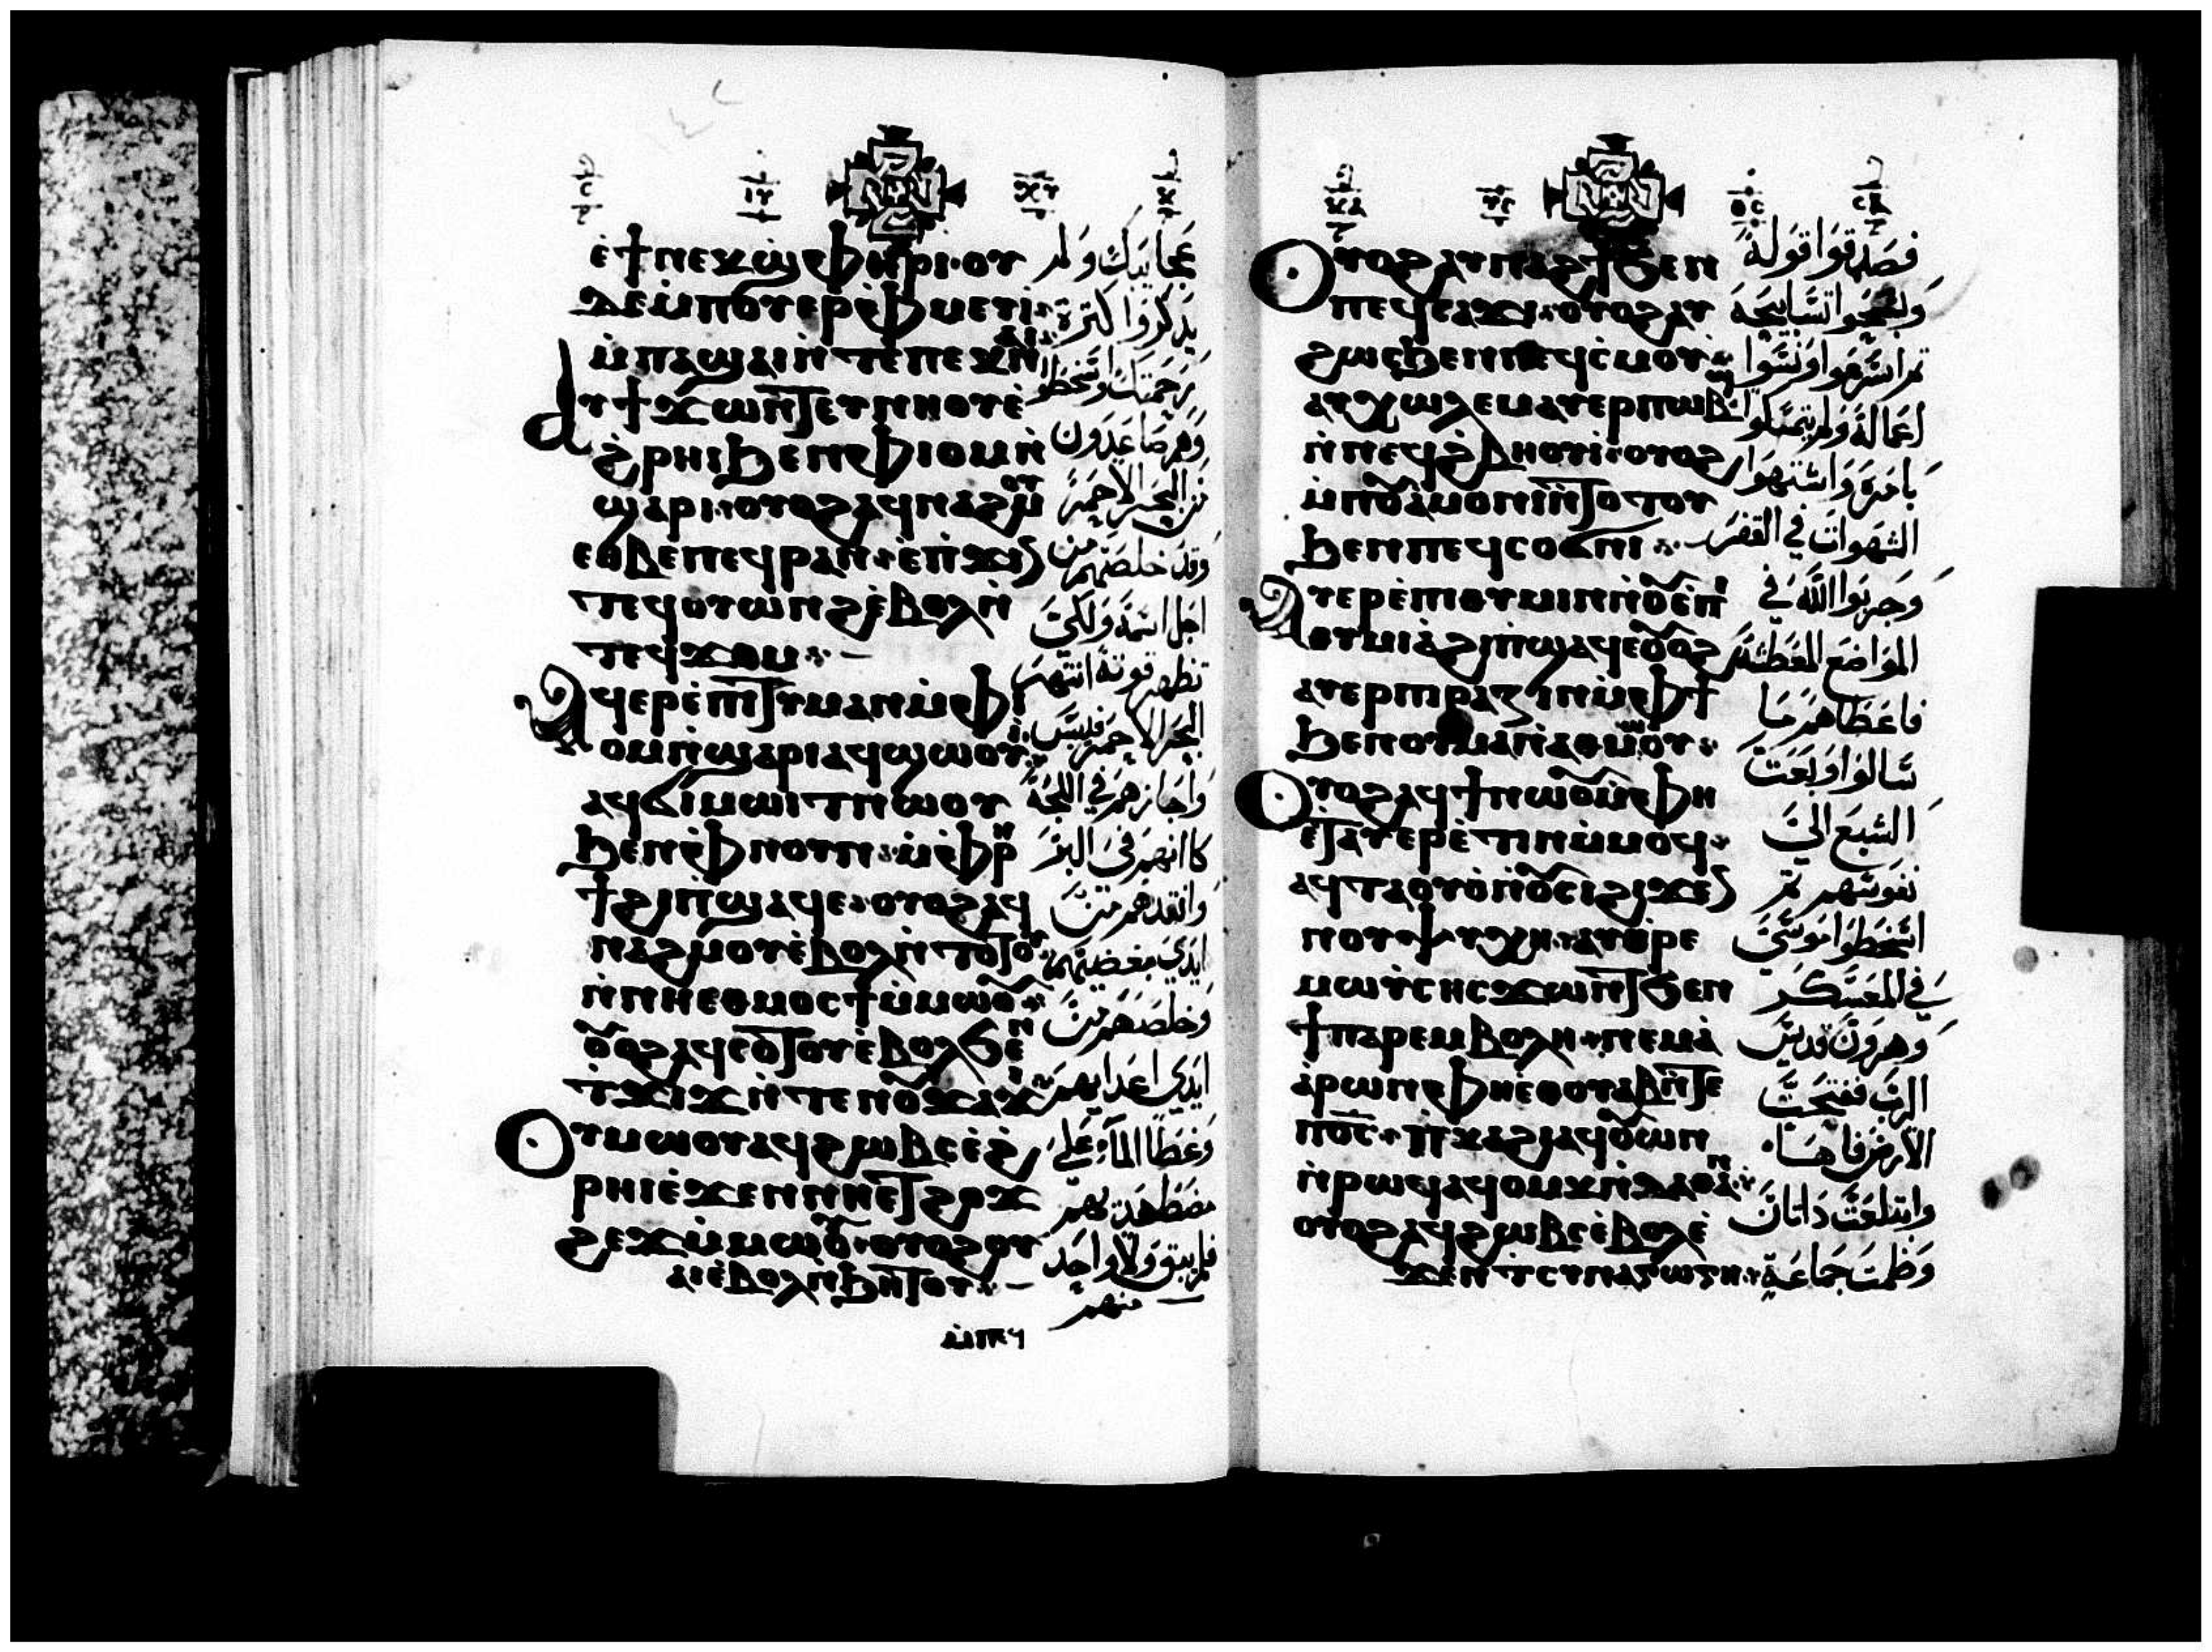 ⲉ̀ϯ ⲛⲉⲕϣ̀ⲫⲏⲣⲓ · ⲟⲩ
ⲇⲉ ⲙ̀ⲡⲟⲩⲉⲣⲫ̀ⲙⲉⲩⲓ
ⲙ̀ⲡⲁϣⲁⲓ ⲛ̀ⲧⲉ ⲡⲉⲕⲛⲁⲓ
ⲁⲩϯϫⲱⲛⲧ ⲉⲩⲛⲏⲟⲩ ⲉ̀
ϩⲣⲏⲓ ϧⲉⲛ ⲫ̀ⲓⲟⲙ ⲛ̀
ϣⲁⲣⲓ · ⲟⲩⲟϩ ⲁϥⲛⲁϩⲙⲟⲩ
ⲉⲑⲃⲉ ⲡⲉϥⲣⲁⲛ · ⲉ̀ⲡ̀ϫⲓⲛ
ⲧⲉϥⲟⲩⲱⲛϩ ⲉ̀ⲃⲟⲗ ⲛ̀
ⲧⲉϥϫⲟⲙ
ⲁϥⲉⲣⲉ̀ⲡⲓⲧⲓⲙⲁⲛ ⲙ̀ⲫⲓ
ⲟⲙ ⲛ̀ϣⲁⲣⲓ ⲁϥϣⲱⲟⲩⲓ
ⲁϥϭⲓⲙⲱⲓⲧ ⲛⲱⲟⲩ
ϧⲉⲛ ⲫ̀ⲛⲟⲩⲛ · ⲙ̀ⲫ̀ⲣⲏ
ϯ ϩⲓ ⲡ̀ϣⲁϥⲉ · ⲟⲩⲟϩ ⲁϥ
ⲛⲁϩⲙⲟⲩ ⲉ̀ⲃⲟⲗ ⲛ̀ⲧⲟⲧⲟⲩ
ⲛ̀ⲛⲏⲉⲑⲙⲟⲥϯ ⲙ̀ⲙⲱⲟⲩ
ⲟⲩⲟϩ ⲁϥⲥⲟⲧⲟⲩ ⲉ̀ⲃⲟⲗϧⲉⲛ
ⲧ̀ϫⲓϫ ⲛ̀ⲧⲉ ⲛⲟⲩϫⲁϫⲓ
ⲟⲩⲙⲱⲟⲩ ⲁϥϩⲱⲃⲥ ⲉ̀ϩ̀
ⲣⲏⲓ ⲉ̀ϫⲉⲛ ⲛⲏⲉⲧϩⲟϫ
ϩⲉϫ ⲙ̀ⲙⲱⲟⲩ · ⲟⲩⲟϩ ⲟⲩ
ⲁⲓ ⲉ̀ⲃⲟⲗ ⲛ̀ϧⲏⲧⲟⲩ
عجايبك ولم
يذكروا كثرة
رحمتك واسخطو
وهم صاعدون
من البحر الاحمر
وقد خلصهم من
اجل اسمه ولكي
تظهر قوته انتهر
البحر الاحمر فيبس
واجازهم في اللجة
كاانهم في البر
وانقدهم من
ايدي مبغضيهم
وخلصهم من
ايدي اعدايهم
وغطا الما علي
مضطهديهم
فلم يبق ولا واحد
منهم
ⲟⲩⲟϩ ⲁⲩⲛⲁϩϯ ϧⲉⲛ
ⲡⲉϥⲥⲁϫⲓ · ⲟⲩⲟϩ ⲁⲩ
ϩⲱⲥ ϧⲉⲛ ⲡⲉϥⲥ̀ⲙⲟⲩ
ⲁⲩⲭⲱⲗⲉⲙ ⲁⲩⲉⲣⲡⲱⲃϣ
ⲛ̀ⲛⲉϥϩ̀ⲃⲏⲟⲩⲓ · ⲟⲩⲟϩ
ⲙ̀ⲡⲟⲩⲁ̀ⲙⲟⲛⲓ ⲛ̀ⲧⲟⲧⲟⲩ
ϧⲉⲛ ⲡⲉϥⲥⲟϭⲛⲓ
ⲁⲩⲉⲣⲉ̀ⲡⲓⲑⲩⲙⲓⲛ ⲛ̀ⲟⲩⲉ̀ⲡⲓ
ⲑⲩⲙⲓⲁ̀ ϩⲓ ⲡ̀ϣⲁϥⲉ ⲟⲩⲟϩ
ⲁⲩⲉⲣⲡⲓⲣⲁⲍⲓⲛ ⲙ̀ⲫϯ
ϧⲉⲛ ⲟⲩⲙⲁ ⲛ̀ⲁⲑⲙⲱⲟⲩ
ⲟⲩⲟϩ ⲁϥϯ ⲛⲱⲟⲩ ⲙ̀ⲫⲏ
ⲉⲧⲁⲩⲉⲣⲉ̀ⲧⲓⲛ ⲙ̀ⲙⲟϥ
ⲁϥⲧⲁⲟⲩⲟ̀ ⲛ̀ⲟⲩⲥⲓ ϩⲓϫⲉⲛ
ⲛⲟⲩⲯⲩⲭⲏ · ⲁⲩⲑⲣⲉ
ⲙⲱⲩⲥⲏⲥ ϫⲱⲛⲧ ϧⲉⲛ
ϯⲡⲁⲣⲉⲙⲃⲟⲗⲏ · ⲛⲉⲙ ⲁ̀
ⲁ̀ⲣⲱⲛ ⲫⲏⲉⲑⲟⲩⲁⲃ ⲛ̀ⲧⲉ
ⲡⲟ̅ⲥ̅ · ⲡ̀ⲕⲁϩⲓ ⲁϥⲟⲩⲱⲛ
ⲛ̀ⲣⲱϥ ⲁϥⲟⲙⲕ ⲛ̀ⲇⲁⲑⲁⲛ
ⲟⲩⲟϩ ⲁϥϩⲱⲃⲥ ⲉ̀ⲃⲟⲗ ⲉ̀
ϫⲉⲛ ⲧ̀ⲥⲩⲛⲁⲅⲱⲅⲏ
فصدقوا قوله
وسبحوا تسابيحه
ثم اسرعوا ونسوا
اعماله ولم يتمسكوا
بامره واشتهوا
الشهوات في القفر
وجربوا الله في
المواضع المعطشة
فاعطاهم ما
سالوا وبعت
الشبع الي
نفوسهم ثم
اسخطوا موسي
في المعسكر
وهرون قديس
الرب ففتحت
الارض فاها
وابتلعت داتان
وطمت جماعة